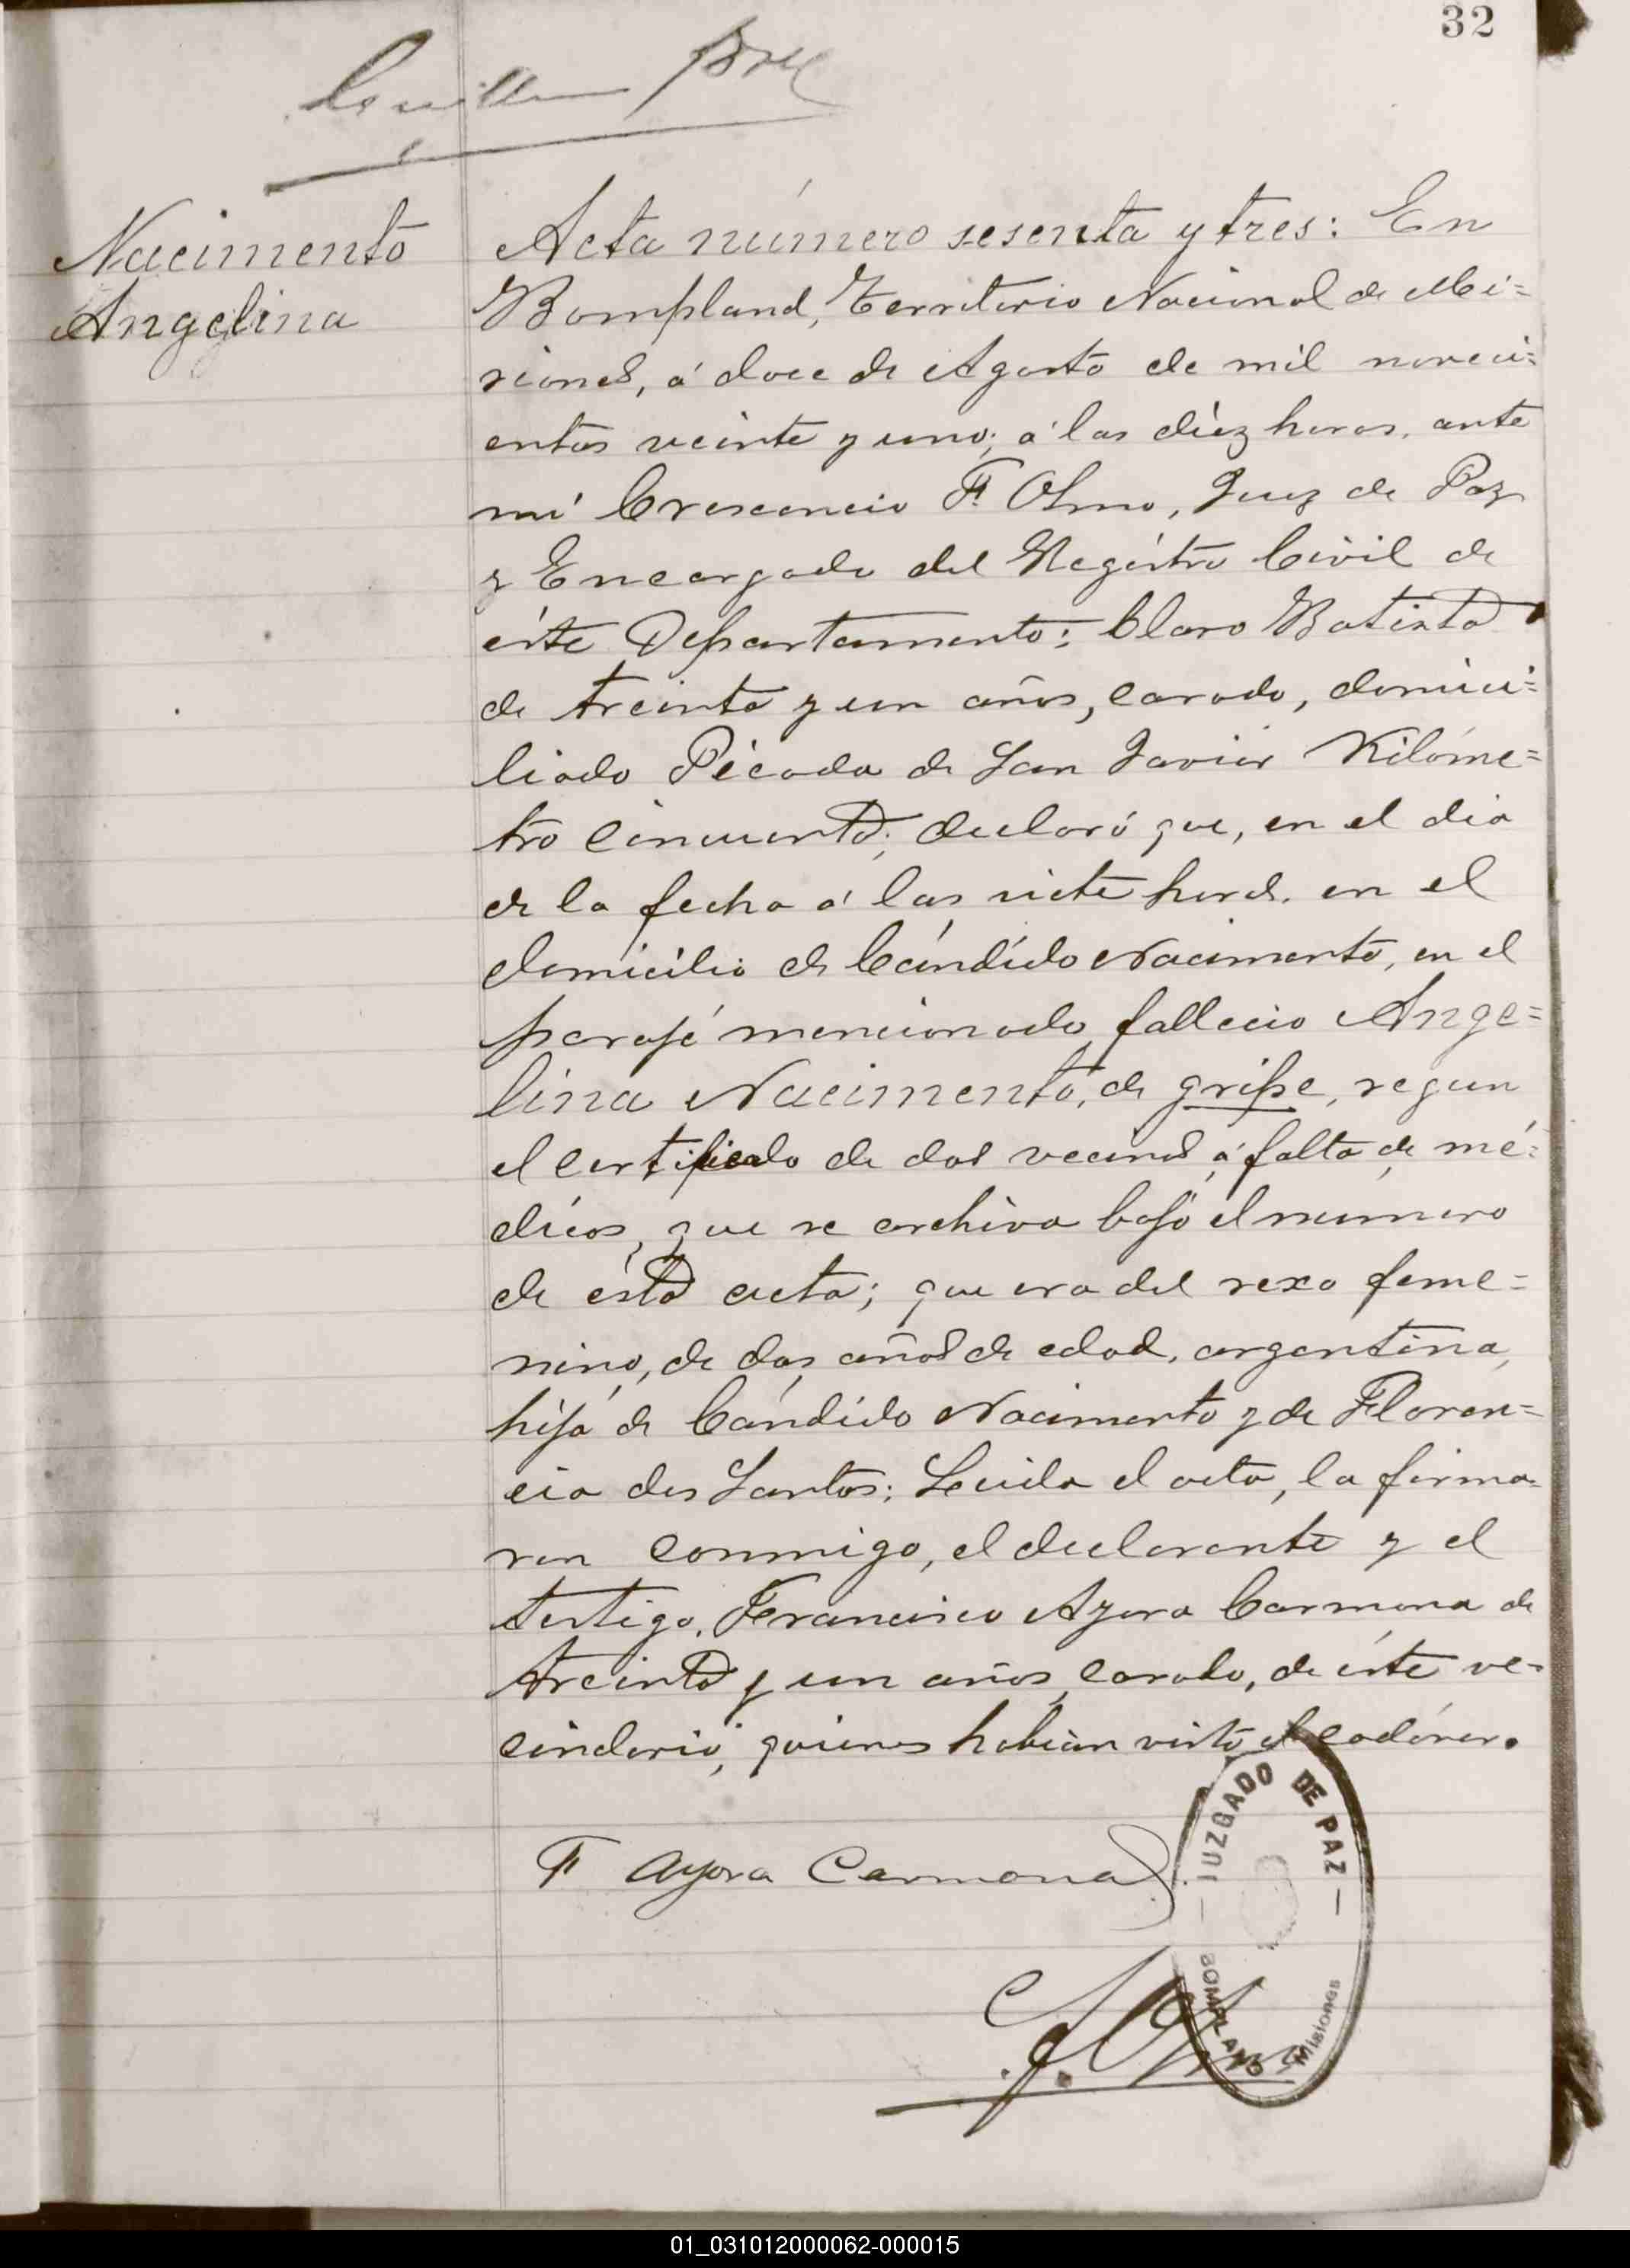 32
Nacimento
Angelina
Acta número sesenta y tres: En
Bompland, Territorio Nacional de Mi=
siones, á doce de Agosto de mil noveci=
entos veinte y uno; á las diez horas, ante
mi Crescencio F. Olmo, Juez de Paz
y Encargado del Registro Civil de
éste Departamento: Claro Batista
de treinta y un años, casado, domici=
liado Picada de San Javier Kilóme=
tro cincuenta; declaró que, en el dia
de la fecha á las siete horas, en el
domicilio de Cándido Nacimento, en el
paraje mencionado, fallecio Ange=
lina Nacimento, de gripe, segun
el certificado de dos vecinos á falta de mé=
dicos, que se archiva bajo el número
de ésta acta; que era del sexo feme=
nino, de dos años de edad, argentina,
hija de Cándido Nacimento y de Floren=
cia dos Santos: Leida el acta, la firma=
ron conmigo, el declarante y el
testigo, Francisco Ayora Carmona de
treinta y un años, casado, de éste ve=
cindario, quienes habian visto el cadáver.
F Ayora Carmona
JUZGADO DE PAZ
BOMPLAND - Misiones
01_031012000062-000015